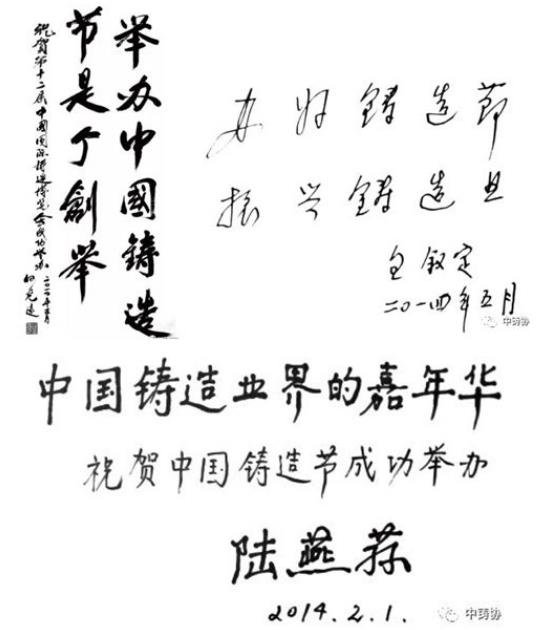 举办中國铸造
节是个創举
祝贺第十二届中國国际铸造博览会成功举办
何光远
办好铸造節
振兴铸造
二〇一四年五月
中铸协
中国铸造业界的嘉年华
祝贺中国铸造节成功举办
陆燕荪
2014.2.1.
中铸协